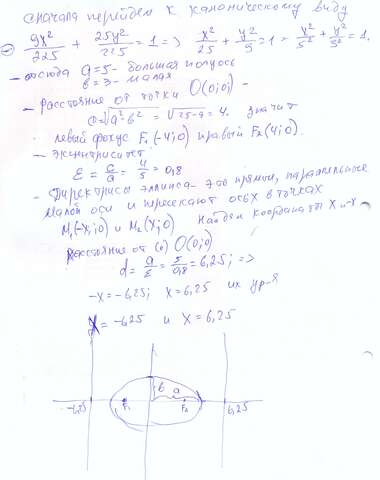 сначала перейдем к каноническому виду
9x²/225 + 25y²/225 = 1 => x²/25 + y²/9 = 1 = x²/5² + y²/3² = 1.
- отсюда a=5 - большая полуось
b=3 - малая
- расстояние от точки O(0;0) -
c=√a²-b² = √25-9 = 4. значит
левый фокус F₁(-4;0) правый F₂(4;0).
- эксцентриситет.
ε = c/a = 4/5 = 0,8
- Директрисы эллипса - это прямые, параллельные
малой оси и пересекают ось X в точках
M₁(-X;0) и M₂(X;0) Найдем координаты X и -X
Расстояние от (·) O(0;0)
d = a/ε = 5/0,8 = 6,25; =>
-X = -6,25; X = 6,25 их ур-я
X = -6,25 и X = 6,25
b a
-6,25 F₁ F₂ 6,25